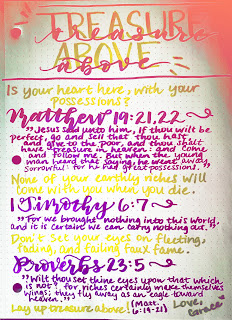 TREASURE
treasure
ABOVE
above
Is your heart here, with your
possessions?
Matthew 19:21,22
"Jesus said unto him, If thou will be
perfect, go and sell that thou hast,
and give to the poor, and thou shalt
have treasure in heaven: and come
and follow me. But when the young
man heard that saying, he went away
sorrowful: for he had great possessions."
None of your earthly riches will
come with you when you die.
1 Timothy 6:7
"For we brought nothing into this world,
and it is certain we can carry nothing out."
Don't set your eyes on fleeting,
fading, and failing faux fame.
Proverbs 23:5
"Wilt thou set thine eyes upon that which
is not? for riches certainly make themselves
wings; they fly away as an eagle toward
heaven."
Lay up treasure above! (Matt. 6:19-21)
Love, Grace